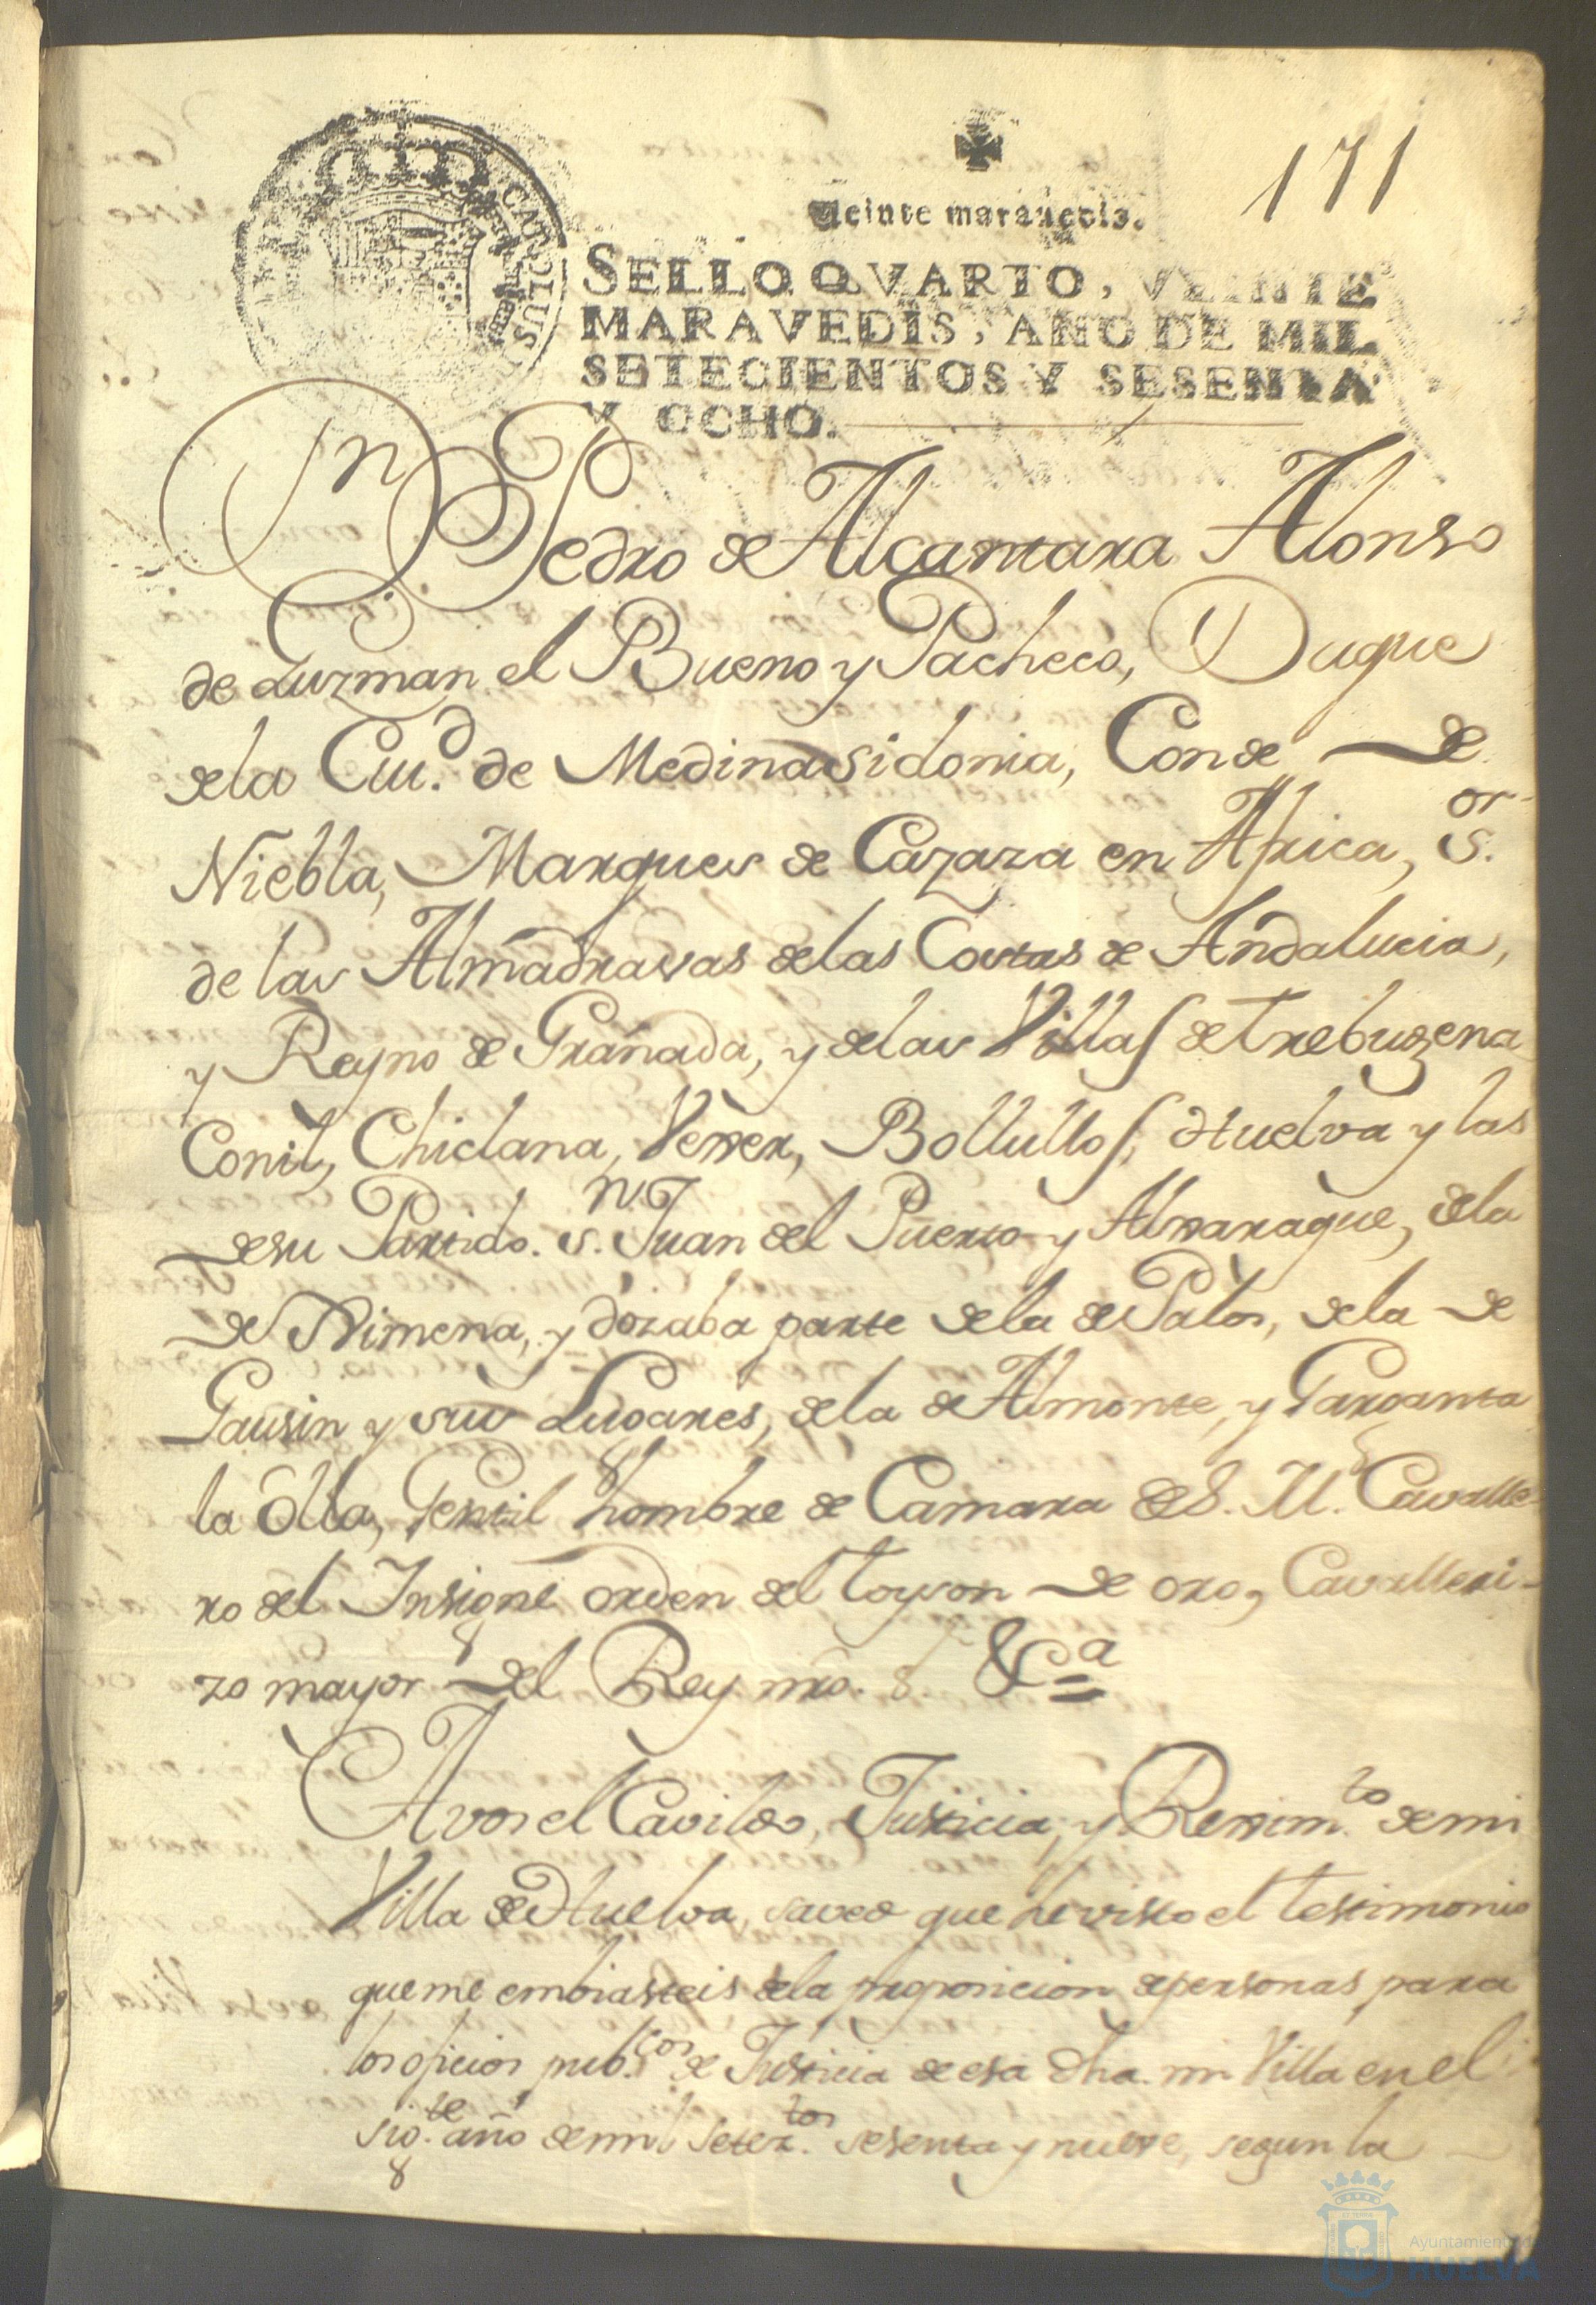 171
Veinte maravedis.
SELLO QVARTO, VEINTE
MARAVEDIS, AÑO DE MIL
SETECIENTOS Y SESENTA
Y OCHO.
Dn Pedro de Alcantara Alonso
de Guzman el Bueno y Pacheco, Duque
de la Ciud. de Medinasidonia, Conde de
Niebla, Marques de Cazaza en Africa, Sor.
de las Almadravas de las Costas de Andalucia,
y Reyno de Granada, y de las Villas de Trebugena
Conil, Chiclana, Vexer, Bollullos, Huelva y las
de su Partido. Sn. Juan del Puerto y Alxaraque, de la
de Ximena, y dozaba parte de la de Palos, de la de
Gausin y sus Lugares, de la de Almonte, y Garganta
la Olla, Gentil hombre de Camara de S. M. Cavalle-
ro del Insigne orden del toyson de oro, Cavalleri-
zo mayor del Rey nro. S. &ca
A vos el Cavildo, Justicia, y Reximto. de mi
Villa de Huelva, saved que he visto el testimonio
que me embiasteis de la proposicion de personas para
los oficios pubcos. de Justicia de esa dha. mi Villa en el
sigte. año de mil seteztos. sesenta y nueve, segun la
Ayuntamiento de
HUELVA